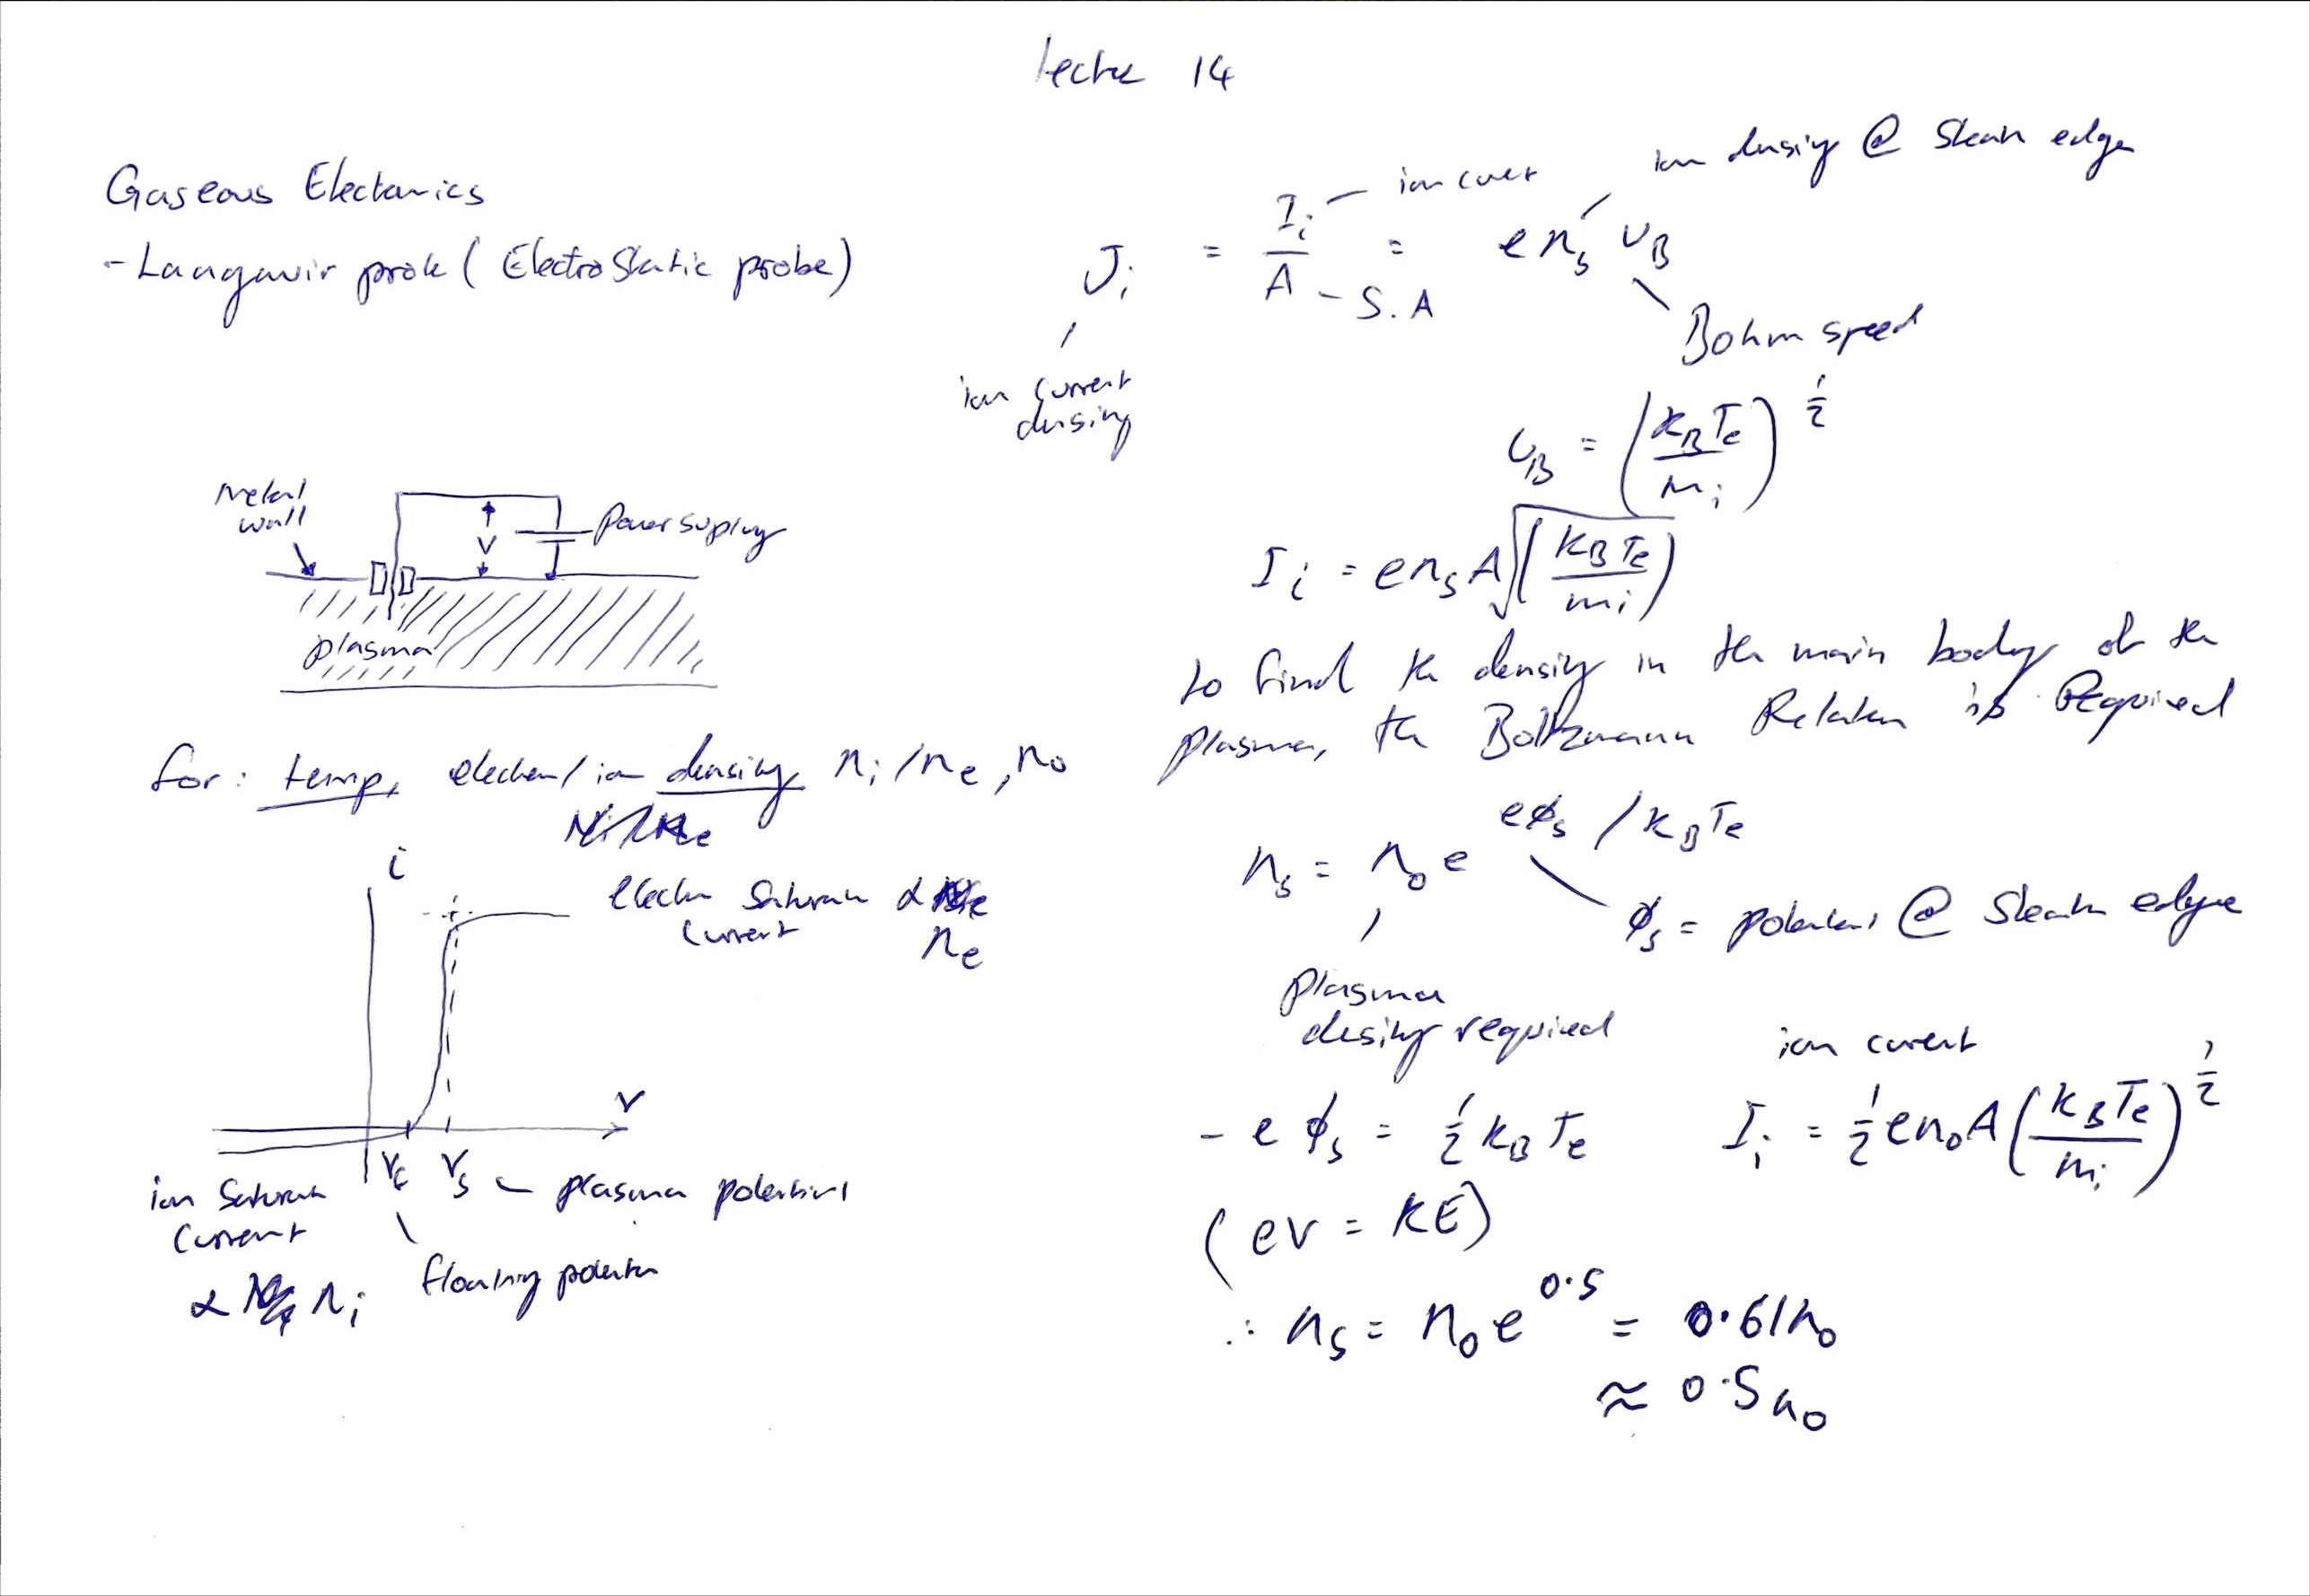 lecture 14
Gaseous Electronics
- Langmuir probe ( Electrostatic probe)
metal
wall
V
Power supply
plasma
for: temp, electron/ion density ni/ne, no
i
electron saturation current ∝ ne
V
Vf Vs – plasma potential
ion saturation
current
∝ ni
floating potential
Ji = Ii/A = e ns uB
ion current
ion density @ sheath edge
S.A
Bohm speed
ion current
density
uB = (kB Te / mi)^1/2
Ii = e ns A √(kB Te / mi)
to find the density in the main body of the
plasma, the Boltzmann Relation is Required
ns = no e^(eϕs / kB Te)
ϕs = potential @ sheath edge
plasma
density required
- e ϕs = 1/2 kB Te
(eV = KE)
∴ ns = no e^0.5 = 0.61no
≈ 0.5 no
ion current
Ii = 1/2 e no A (kB Te / mi)^1/2